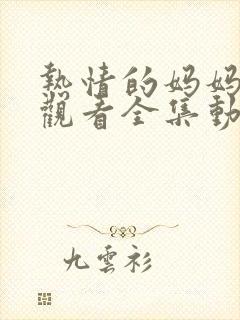 熱情的妈妈
觀看全集動
九雲衫